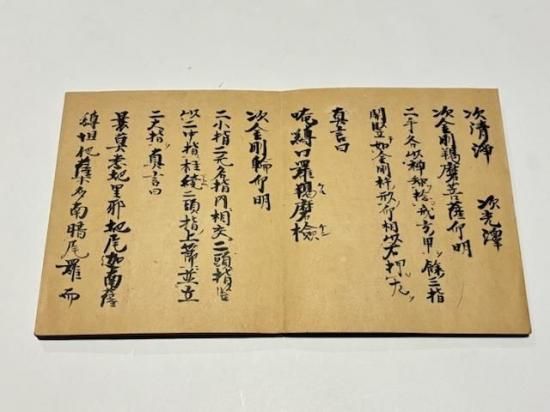 次清淨 次光澤
次金剛羯磨菩薩印明
二手各以禪智捻戒方甲餘三指
開竪如金剛杵形仰相以右押左
真言曰
唵縛日羅羯磨檢
次金剛輪印明
二小指二无名指内相交二頭指直
以二中指柱繞二頭指上節並立
二大指真言曰
曩莫悉地里耶地尾迦南薩
縛怛他薩多南暗尾羅而